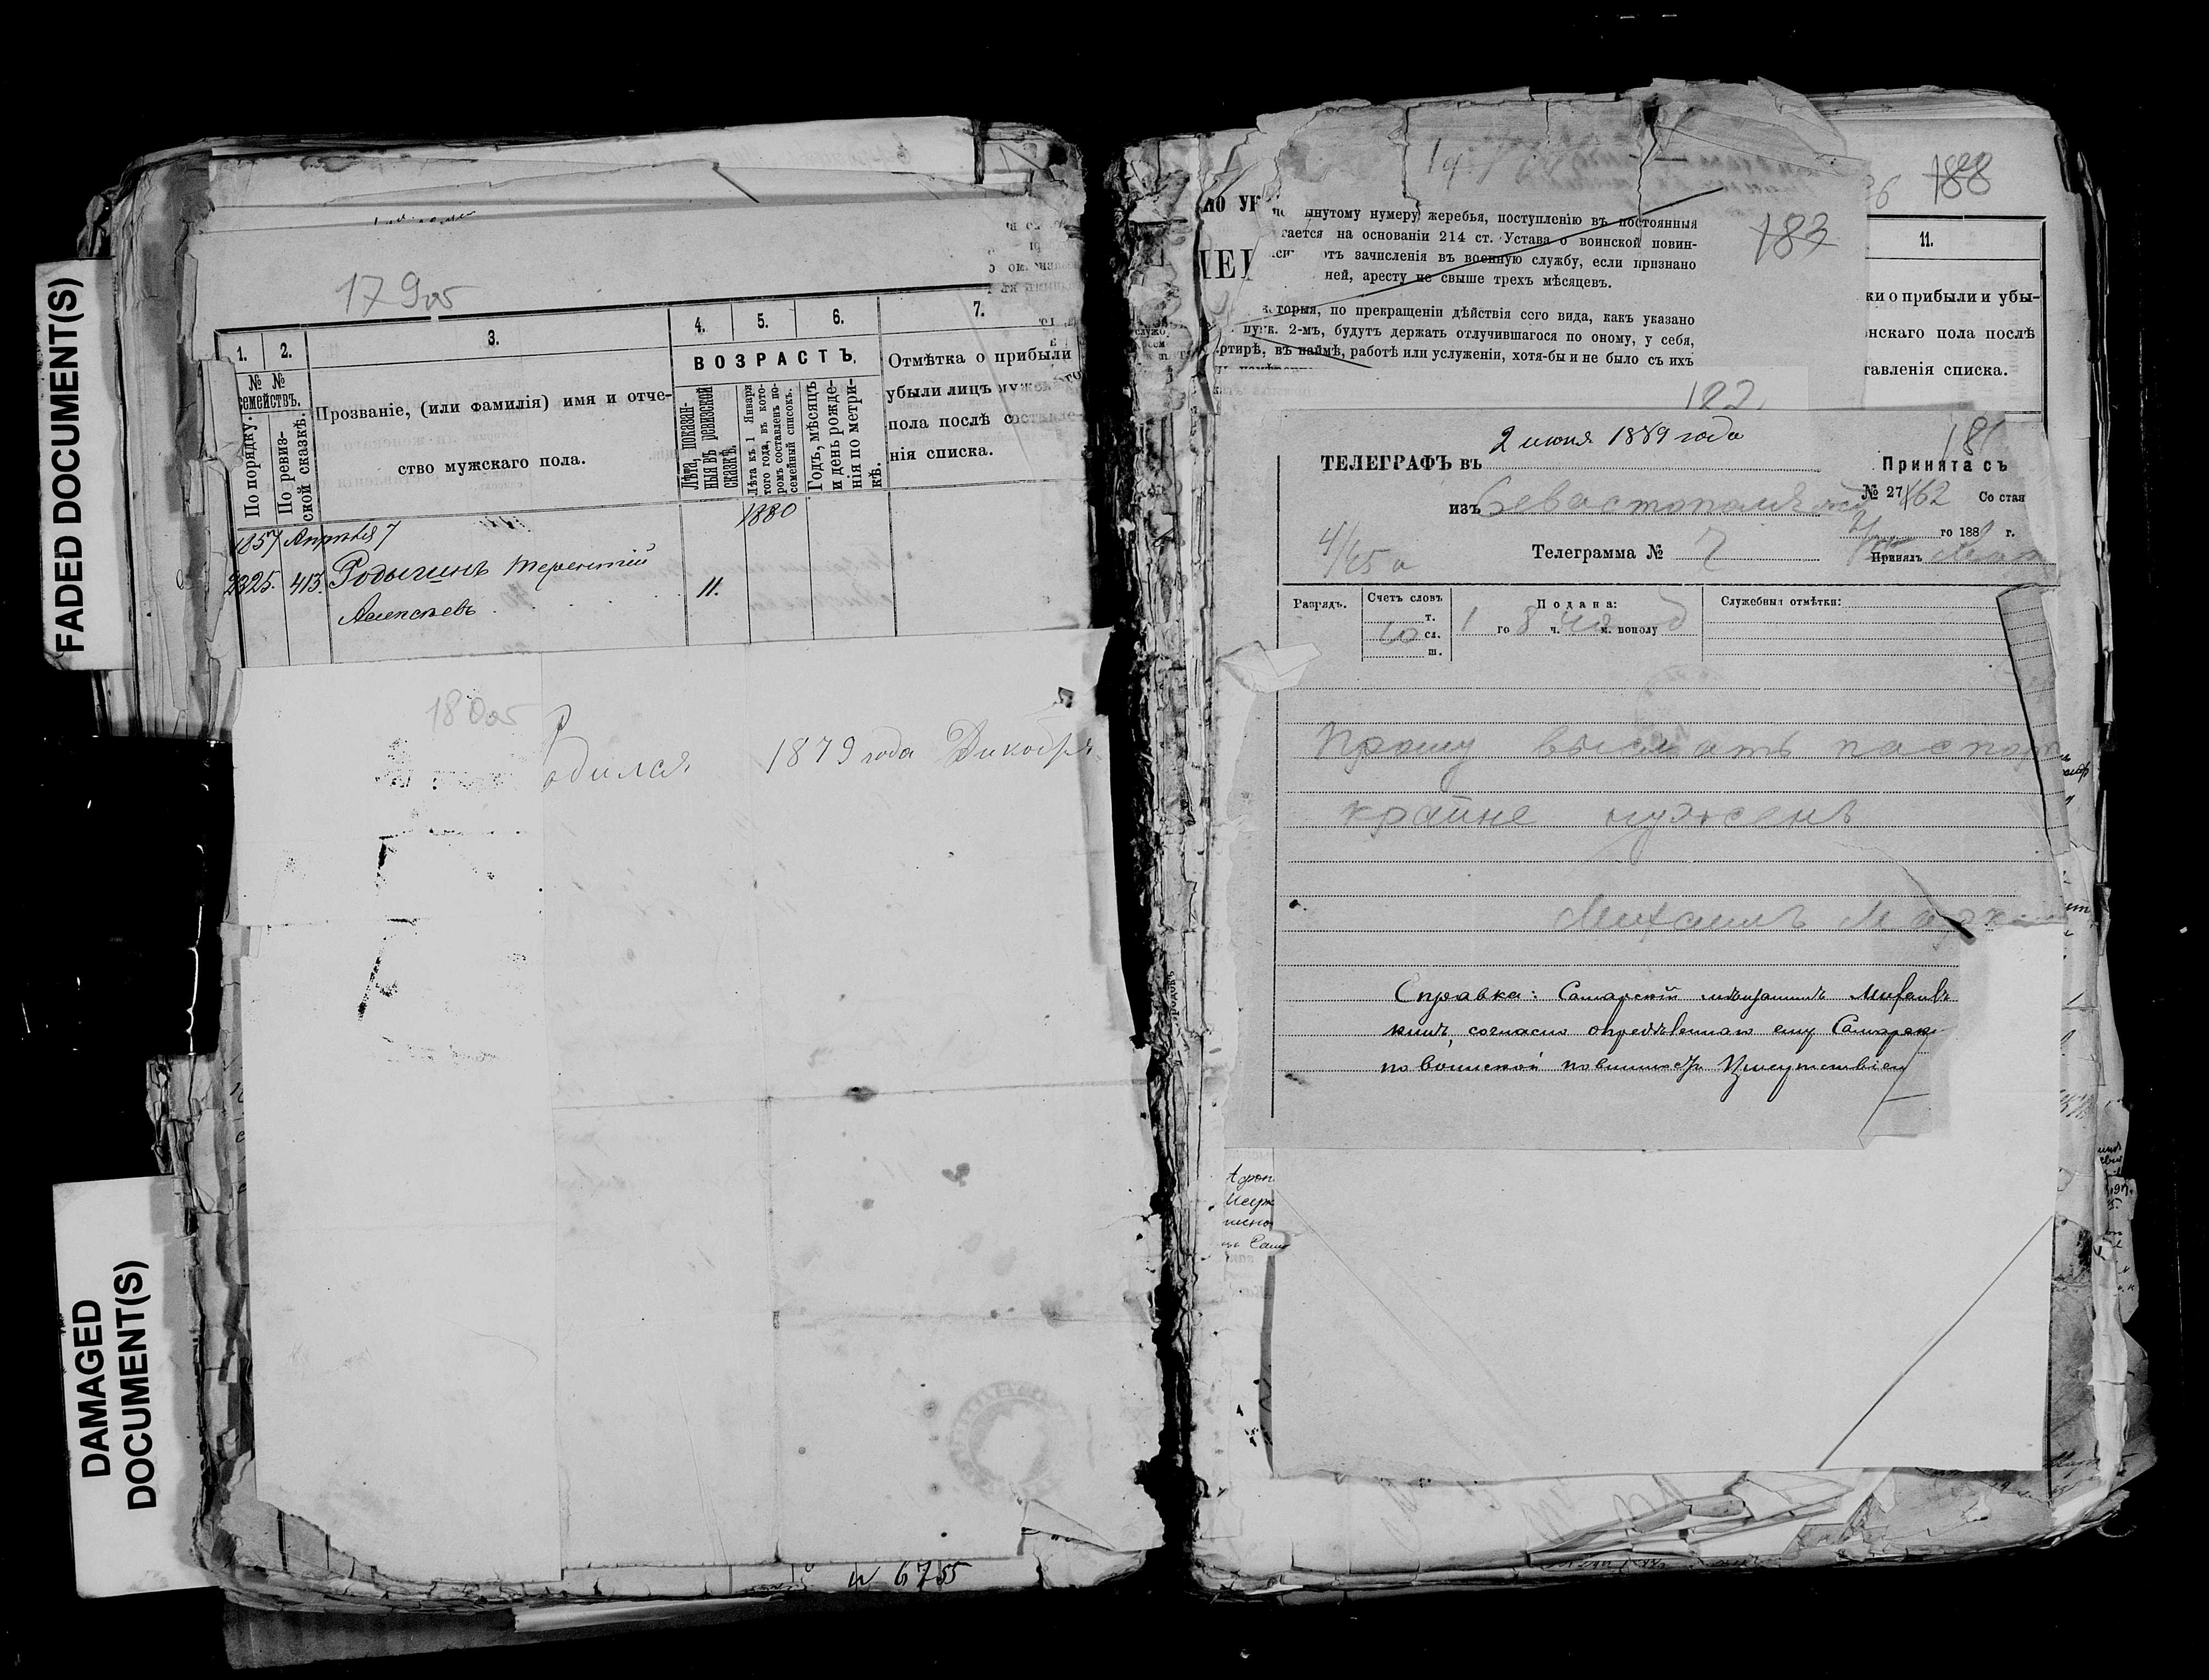 FADED DOCUMENT(S)
DAMAGED
DOCUMENT(S)
179об
1. 2. 3. 4. 5. 6. 7.
№ №
семействъ.
По порядку.
По ревиз-
ской сказкѣ.
Прозваніе, (или фамилія) имя и отче-
ство мужскаго пола.
ВОЗРАСТЪ.
Лѣта, показан-
ныя въ ревизской
сказкѣ.
Лѣта къ 1 Января
того года, въ кото-
ромъ составленъ по-
семейный списокъ.
Годъ, мѣсяцъ
и день рожде-
нія по метри-
кѣ.
Отмѣтка о прибыли
убыли лицъ мужскаго
пола послѣ составле-
нія списка.
1880
1857 Апрѣля 7
2325. 413. Родыгинъ Терентій 11.
Алексѣевъ
180об
одился 1879 года Декабря
6755
188
183
ынутому нумеру жеребья, поступленію въ постоянныя
гается на основаніи 214 ст. Устава о воинской повин-
отъ зачисленія въ военную службу, если признано
ней, аресту не свыше трехъ мѣсяцевъ.
торыя, по прекращеніи дѣйствія сего вида, какъ указано
пунк. 2-мъ, будутъ держать отлучившагося по оному, у себя,
ртирѣ, въ наймѣ, работѣ или услуженіи, хотя-бы и не было съ ихъ
11.
ки о прибыли и убы-
нскаго пола послѣ
тавленія списка.
182
181
2 июня 1889 года
ТЕЛЕГРАФЪ въ
Принята съ
изъ Севастополя
№ 27/62 Со стан
го 188 г.
Телеграмма № 7
Принялъ
Разрядъ. Счетъ словъ Подана: Служебныя отмѣтки:
т.
10 сл. 1 го 8 ч. м. пополу
ш.
Прошу выслать паспорт
крайне нуженъ
Михаилъ Марк
Справка: Самарскій мѣщанинъ Михаилъ
кинъ, согласно опредѣленнаго ему Самарск
по воинской повинности Присутствіем